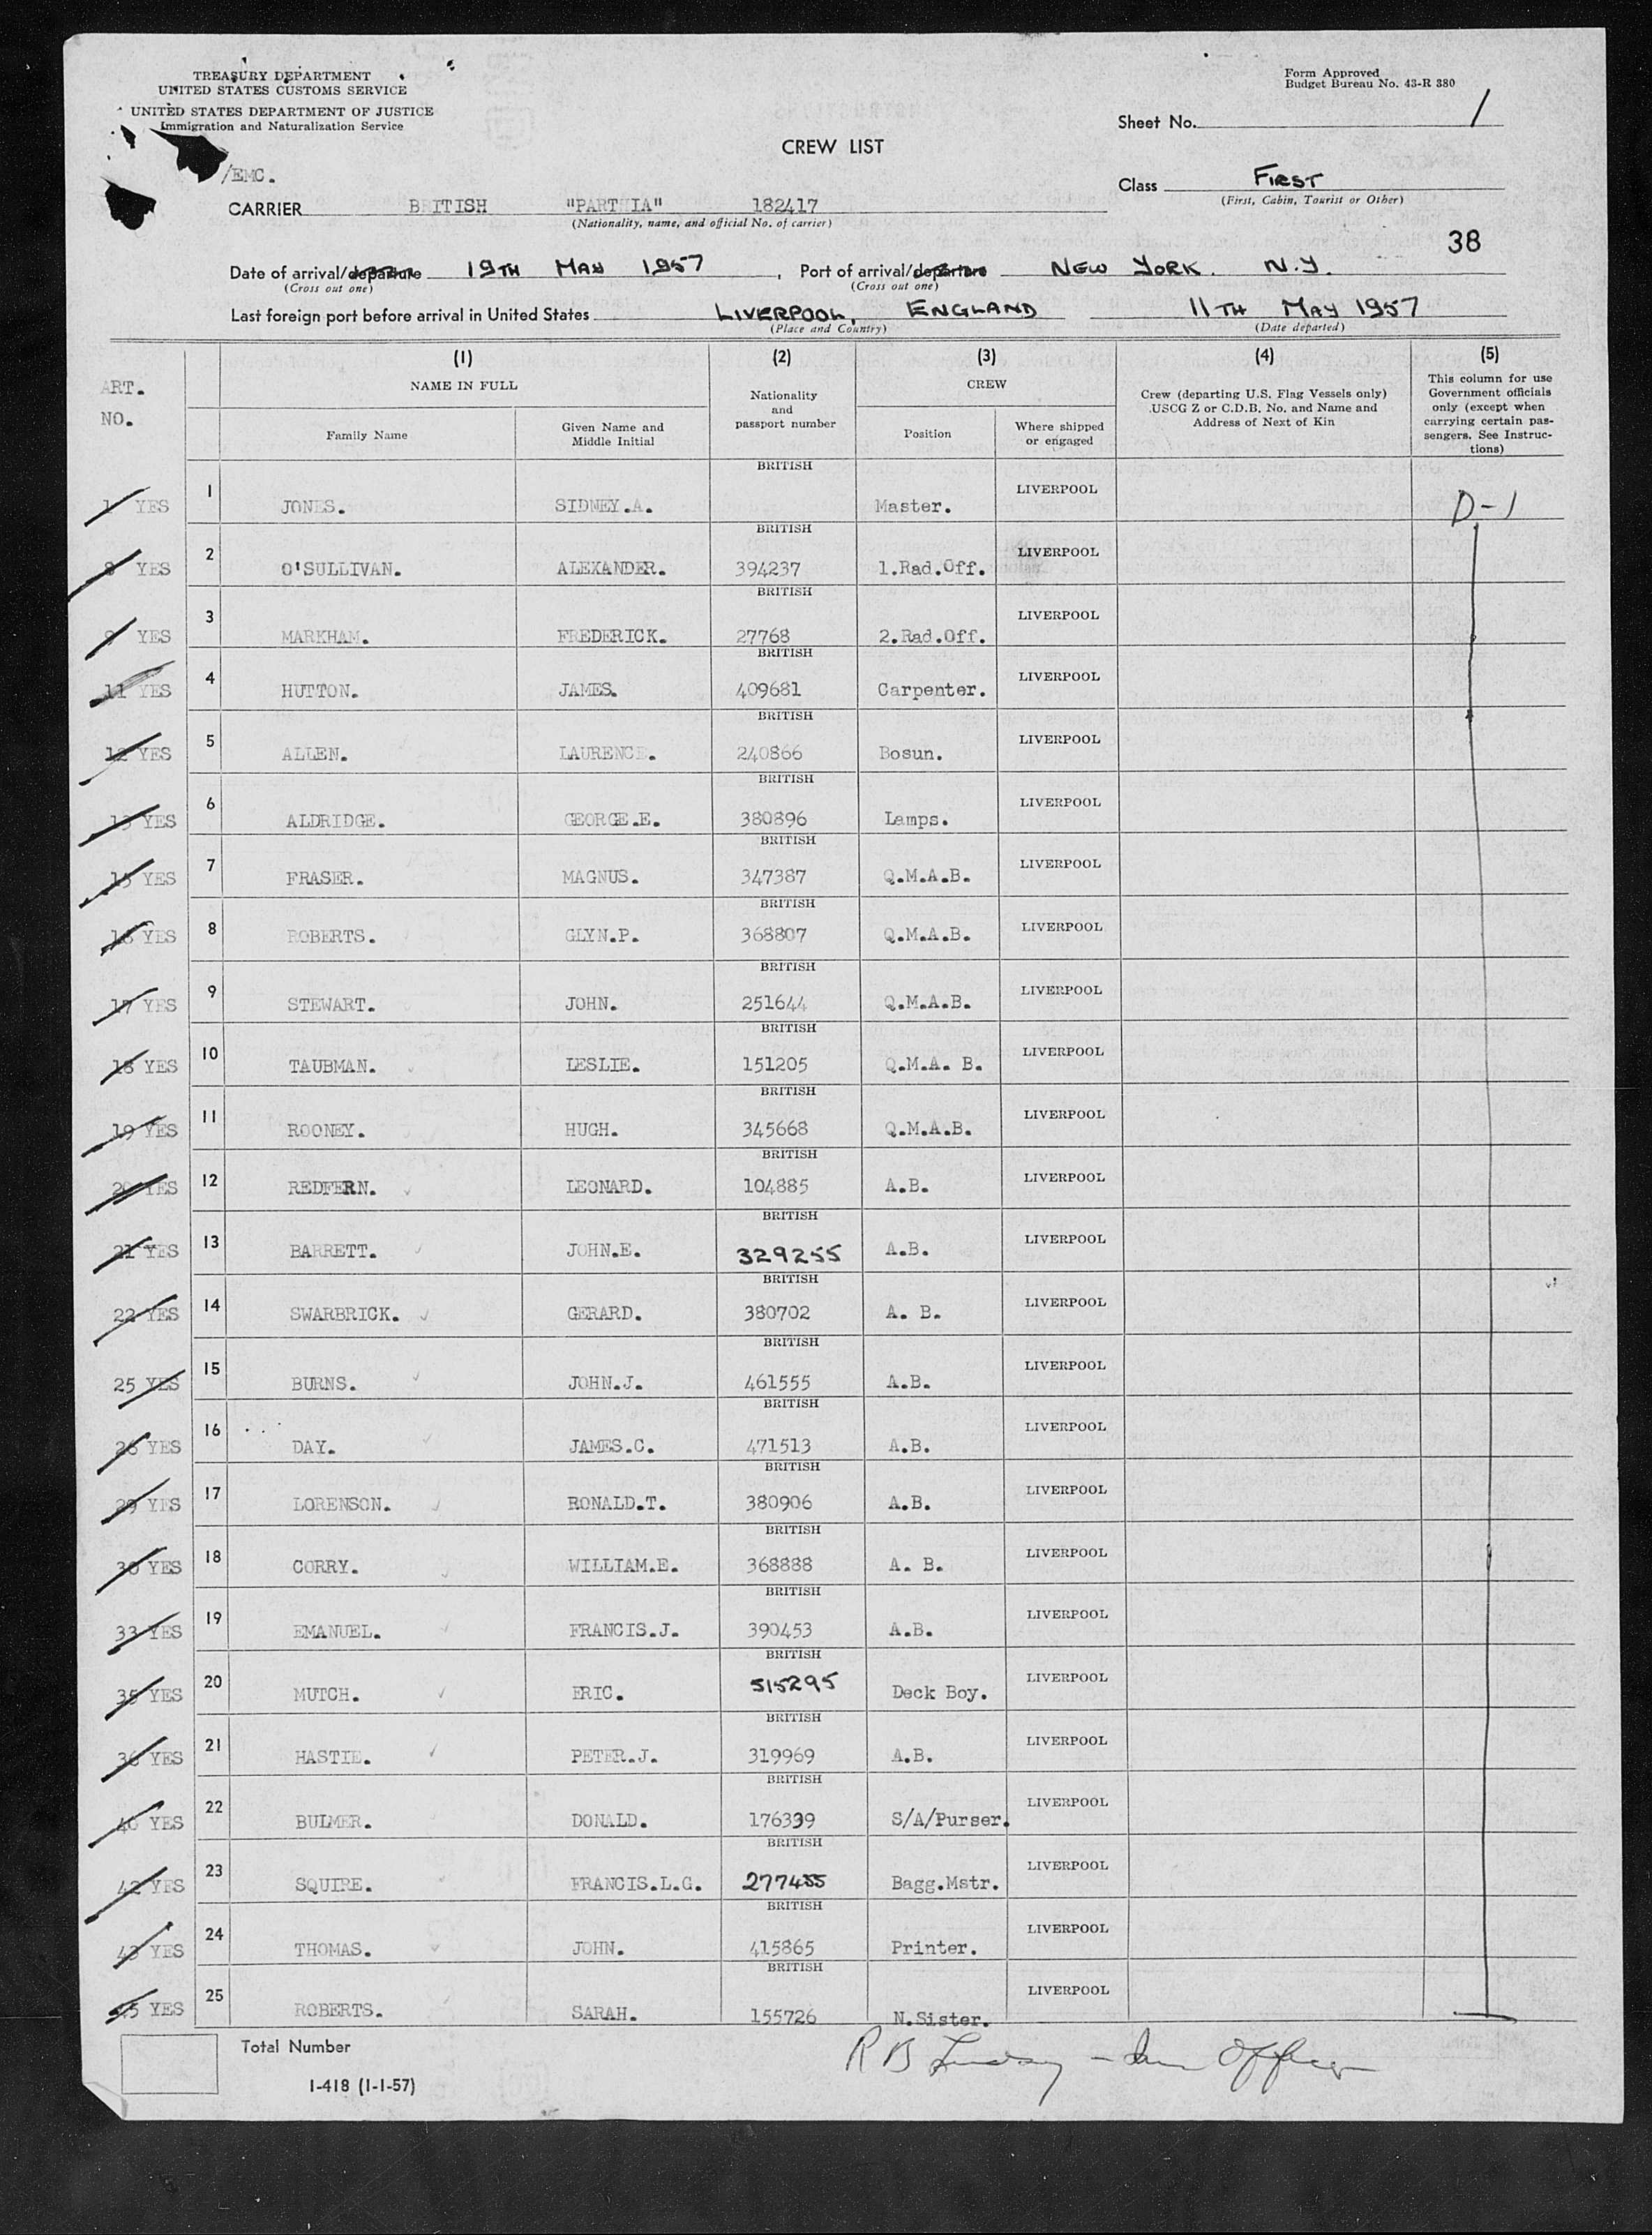 TREASURY DEPARTMENT
UNITED STATES CUSTOMS SERVICE
UNITED STATES DEPARTMENT OF JUSTICE
Immigration and Naturalization Service
Form Approved
Budget Bureau No. 43-R 380
Sheet No. 1
CREW LIST
/EMC.
Class FIRST
(First, Cabin, Tourist or Other)
CARRIER BRITISH "PARTHIA" 182417
(Nationality, name, and official No. of carrier)
38
Date of arrival/departure 19TH MAY 1957, Port of arrival/departure NEW YORK. N.Y.
(Cross out one) (Cross out one)
Last foreign port before arrival in United States LIVERPOOL, ENGLAND 11TH MAY 1957
(Place and Country) (Date departed)
ART. NO.
(1) (2) (3) (4) (5)
NAME IN FULL
Family Name
Given Name and Middle Initial
Nationality and passport number
CREW
Position
Where shipped or engaged
Crew (departing U.S. Flag Vessels only) USCG Z or C.D.B. No. and Name and Address of Next of Kin
This column for use Government officials only (except when carrying certain passengers. See Instructions)
1 YES 1 JONES. SIDNEY.A. BRITISH Master. LIVERPOOL D-1
8 YES 2 O'SULLIVAN. ALEXANDER. BRITISH 394237 1.Rad.Off. LIVERPOOL
9 YES 3 MARKHAM. FREDERICK. BRITISH 27768 2.Rad.Off. LIVERPOOL
11 YES 4 HUTTON. JAMES. BRITISH 409681 Carpenter. LIVERPOOL
12 YES 5 ALLEN. LAURENCE. BRITISH 240866 Bosun. LIVERPOOL
13 YES 6 ALDRIDGE. GEORGE.E. BRITISH 380896 Lamps. LIVERPOOL
15 YES 7 FRASER. MAGNUS. BRITISH 347387 Q.M.A.B. LIVERPOOL
16 YES 8 ROBERTS. GLYN.P. BRITISH 368807 Q.M.A.B. LIVERPOOL
17 YES 9 STEWART. JOHN. BRITISH 251644 Q.M.A.B. LIVERPOOL
18 YES 10 TAUBMAN. LESLIE. BRITISH 151205 Q.M.A. B. LIVERPOOL
19 YES 11 ROONEY. HUGH. BRITISH 345668 Q.M.A.B. LIVERPOOL
20 YES 12 REDFERN. LEONARD. BRITISH 104885 A.B. LIVERPOOL
21 YES 13 BARRETT. JOHN.E. BRITISH 329255 A.B. LIVERPOOL
22 YES 14 SWARBRICK. GERARD. BRITISH 380702 A. B. LIVERPOOL
25 YES 15 BURNS. JOHN.J. BRITISH 461555 A.B. LIVERPOOL
26 YES 16 DAY. JAMES.C. BRITISH 471513 A.B. LIVERPOOL
29 YES 17 LORENSON. RONALD.T. BRITISH 380906 A.B. LIVERPOOL
30 YES 18 CORRY. WILLIAM.E. BRITISH 368888 A. B. LIVERPOOL
33 YES 19 EMANUEL. FRANCIS.J. BRITISH 390453 A.B. LIVERPOOL
35 YES 20 MUTCH. ERIC. BRITISH 515295 Deck Boy. LIVERPOOL
36 YES 21 HASTIE. PETER.J. BRITISH 319969 A.B. LIVERPOOL
40 YES 22 BULMER. DONALD. BRITISH 176339 S/A/Purser. LIVERPOOL
42 YES 23 SQUIRE. FRANCIS.L.G. BRITISH 277455 Bagg.Mstr. LIVERPOOL
43 YES 24 THOMAS. JOHN. BRITISH 415865 Printer. LIVERPOOL
45 YES 25 ROBERTS. SARAH. BRITISH 155726 N.Sister. LIVERPOOL
Total Number
R B Lindsay - Imm Officer
I-418 (1-1-57)